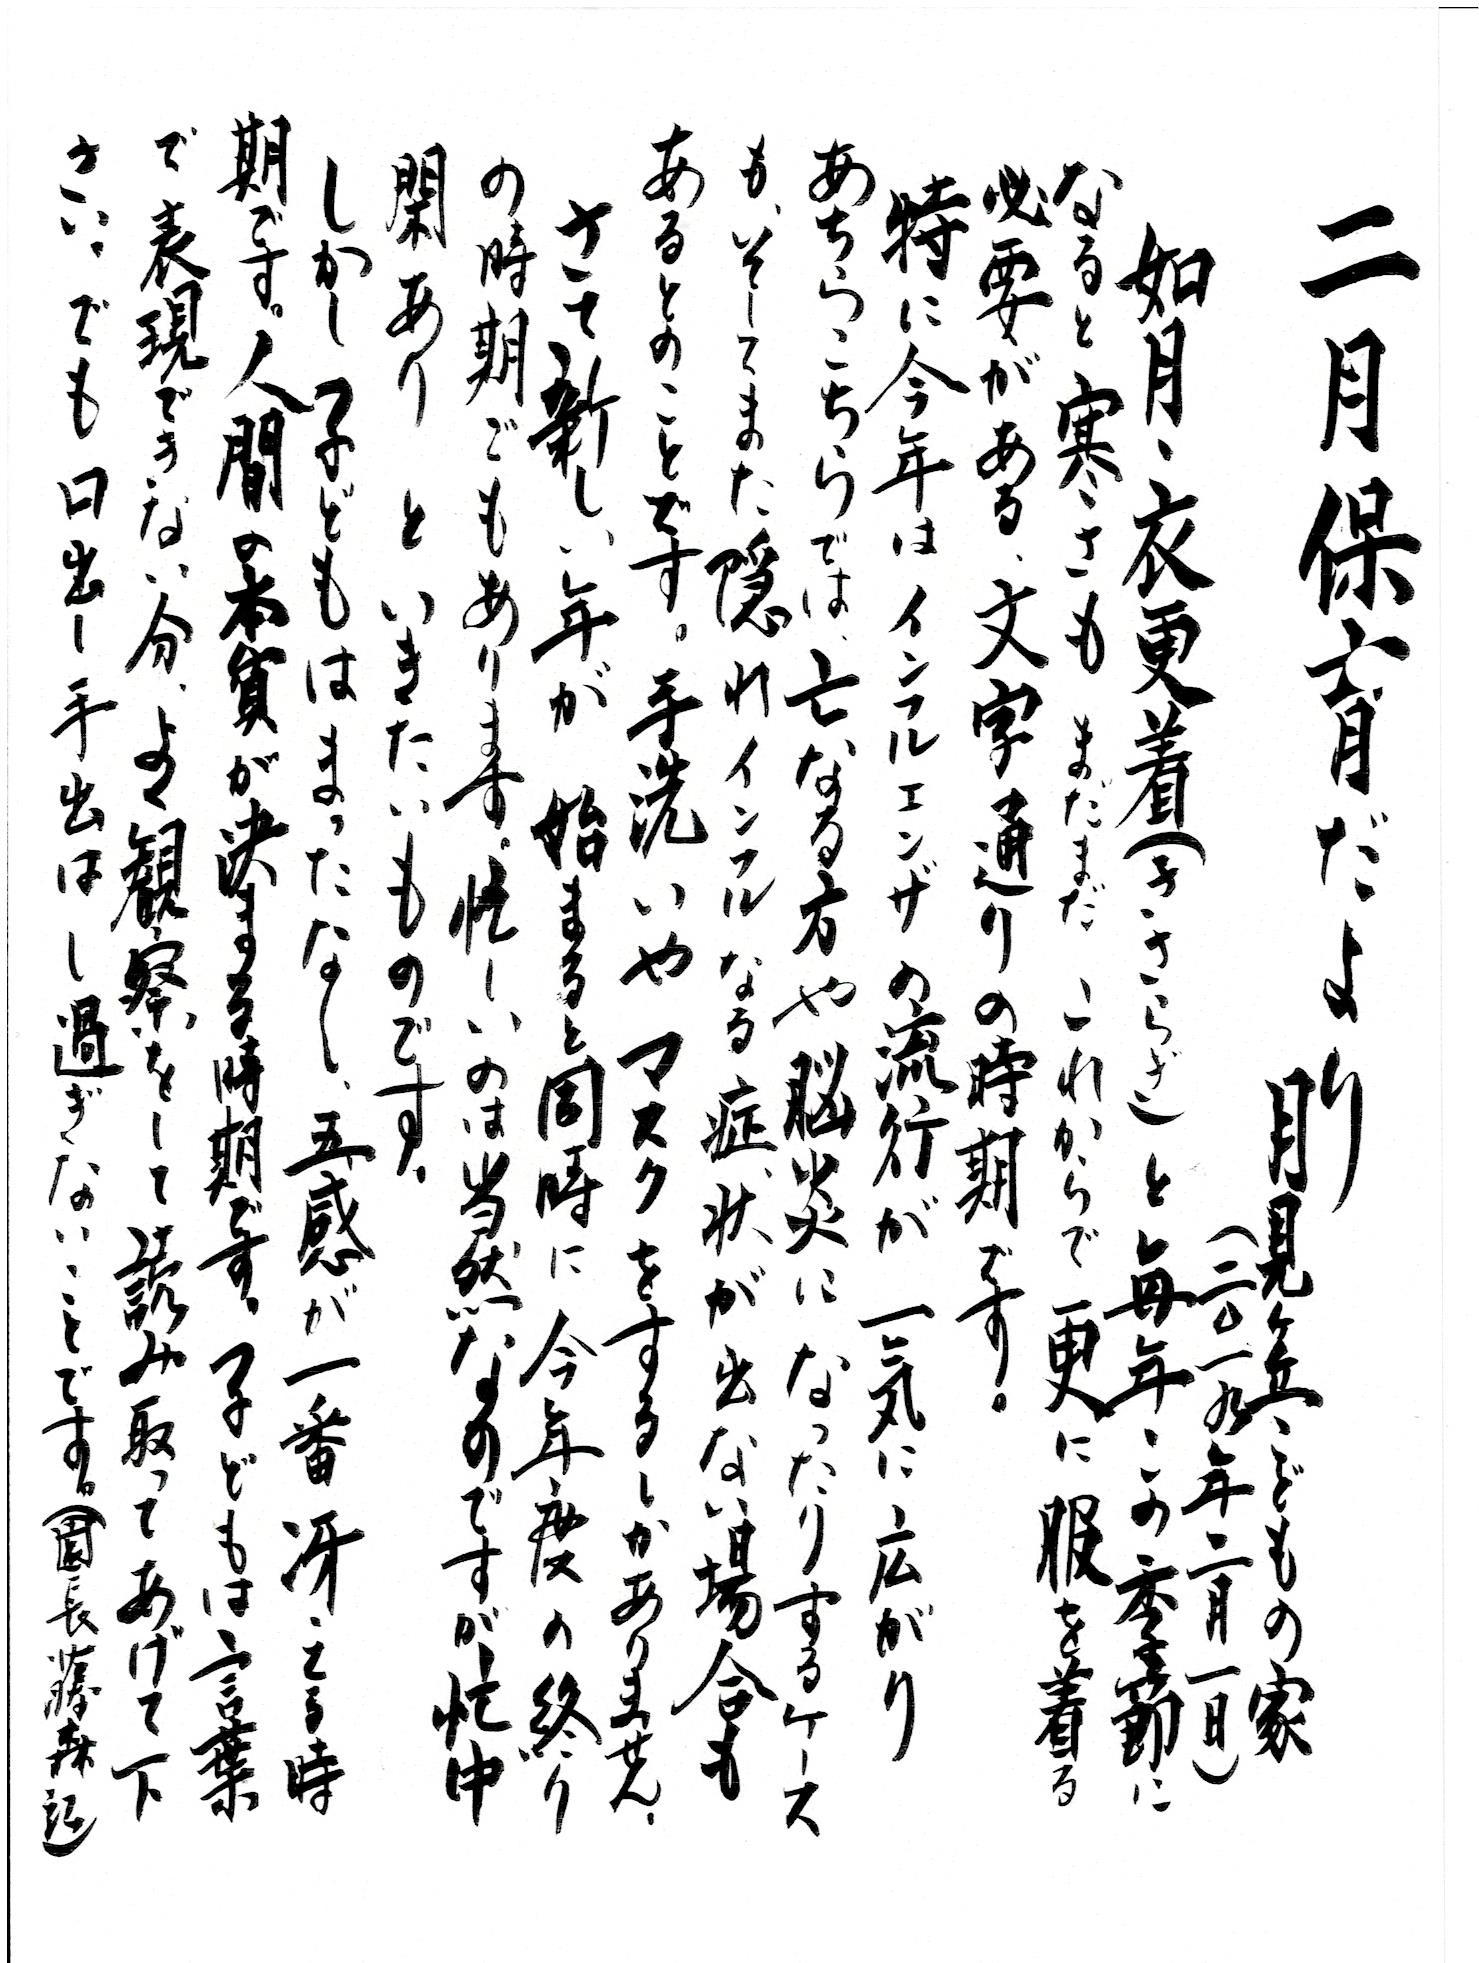 二月保育だより
月見ヶ丘こどもの家
(二〇一九年二月一日)
如月、衣更着(きさらぎ)と毎年この季節に
なると寒さも まだまだ これからで更に服を着る
必要がある、文字通りの時期です。
特に今年はインフルエンザの流行が 一気に広がり
あちらこちらでは、亡なる方や脳炎に なったりするケース
も、そしてまた隠れインフルなる症状が出ない場合も
あるとのことです。手洗いや マスクをするしかありません。
さて新しい年が 始まると同時に今年度の終り
の時期でもあります。忙しいのは当然なのですが、忙中
閑あり といきたいものです。
しかし 子どもはまったなし、五感が一番冴える時
期です。人間の本質が決まる時期です。子どもは言葉
で表現できない分、よく観察をして読み取ってあげて下
さい。でも口出し手出はし過ぎないことです。(園長藤森記)